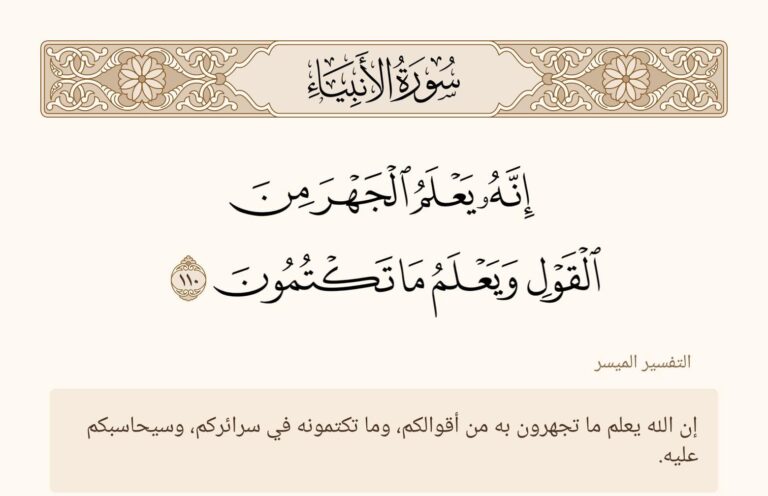 سُورَةُ الأَنبِيَاءِ
إِنَّهُۥ يَعْلَمُ ٱلْجَهْرَ مِنَ
ٱلْقَوْلِ وَيَعْلَمُ مَا تَكْتُمُونَ ١١٠
التفسير الميسر
إن الله يعلم ما تجهرون به من أقوالكم، وما تكتمونه في سرائركم، وسيحاسبكم
عليه.